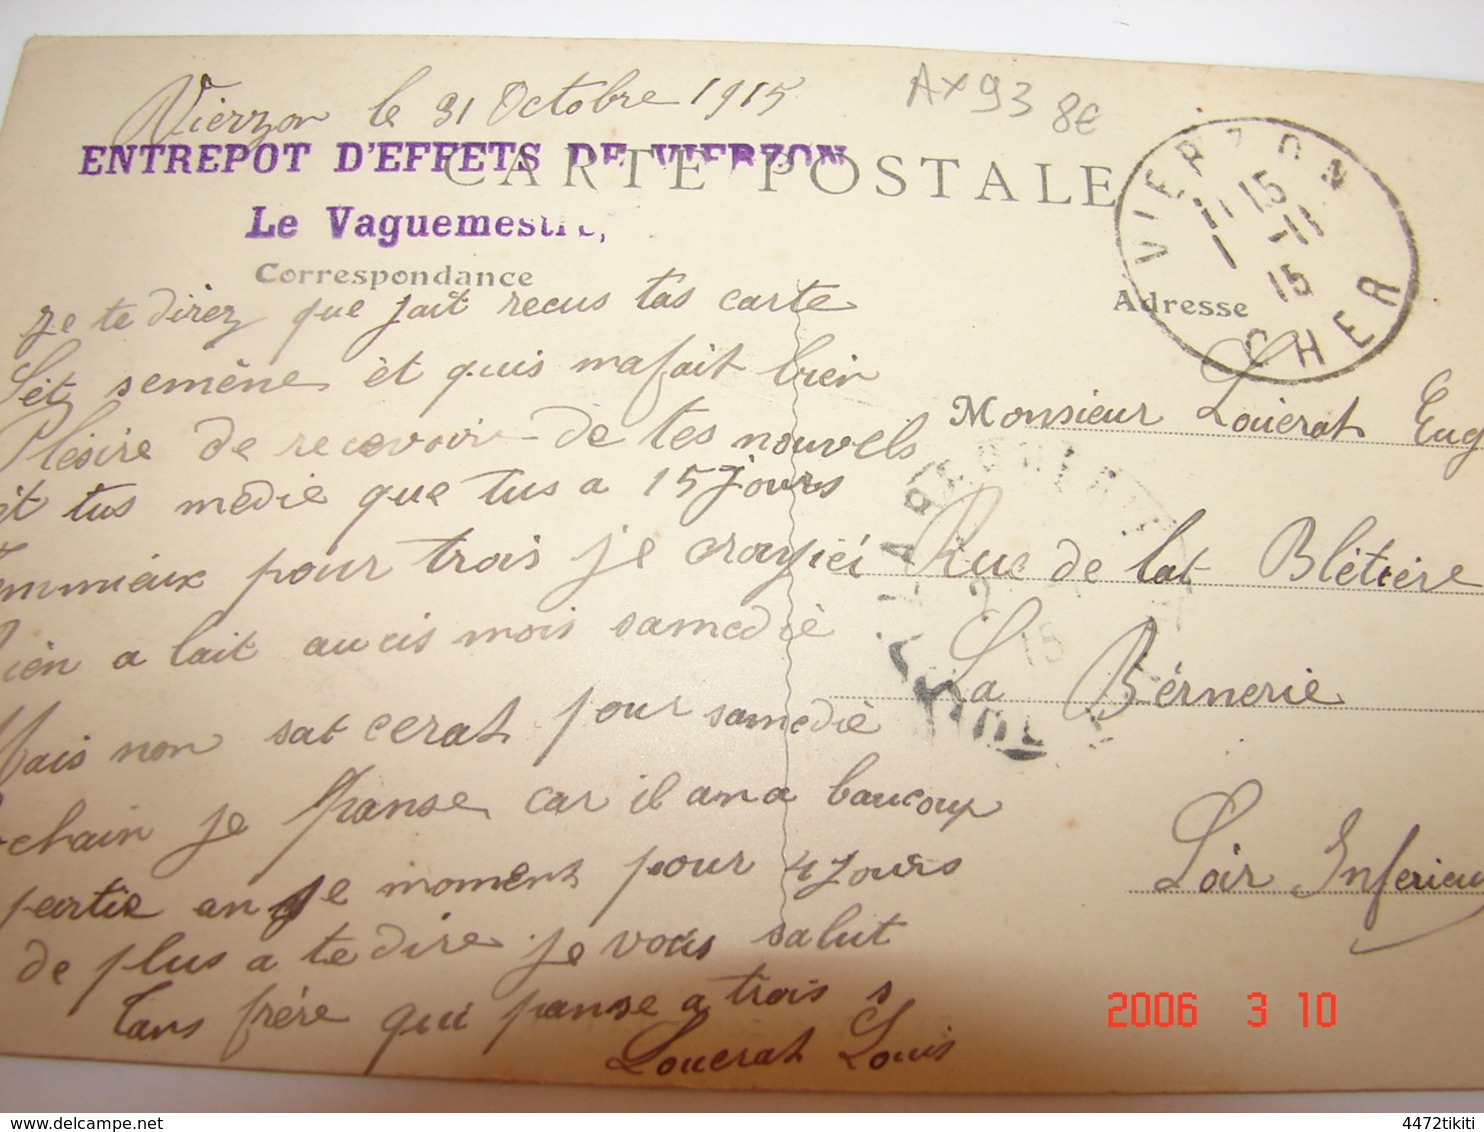 Vierzon le 31 Octobre 1915
AX93 8€
ENTREPOT D'EFFETS DE VIERZON
CARTE POSTALE
Le Vaguemestre,
Correspondance
Adresse
VIERZON
11 15
1 -11
15
CHER
Je te direz que jait recus tas carte
Sèt semène èt quis mafait bien
Plésire de recevoir de tes nouvels
èt tus medie que tus a 15 jours
pour trois je croyiéi
bien a lait aucis mois samedie
Mais non sat cerat pour samedie
chain je panse car il ana baucoup
partie an se moment pour 4 jours
de plus a te dire je vous salut
Tans frère qui panse a trois s
Louerat Louis
Monsieur Louerat Eug
Rue de lat Blétière
La Bérnerie
Loir Inferieu
2
15
2006 3 10
4472tikiti